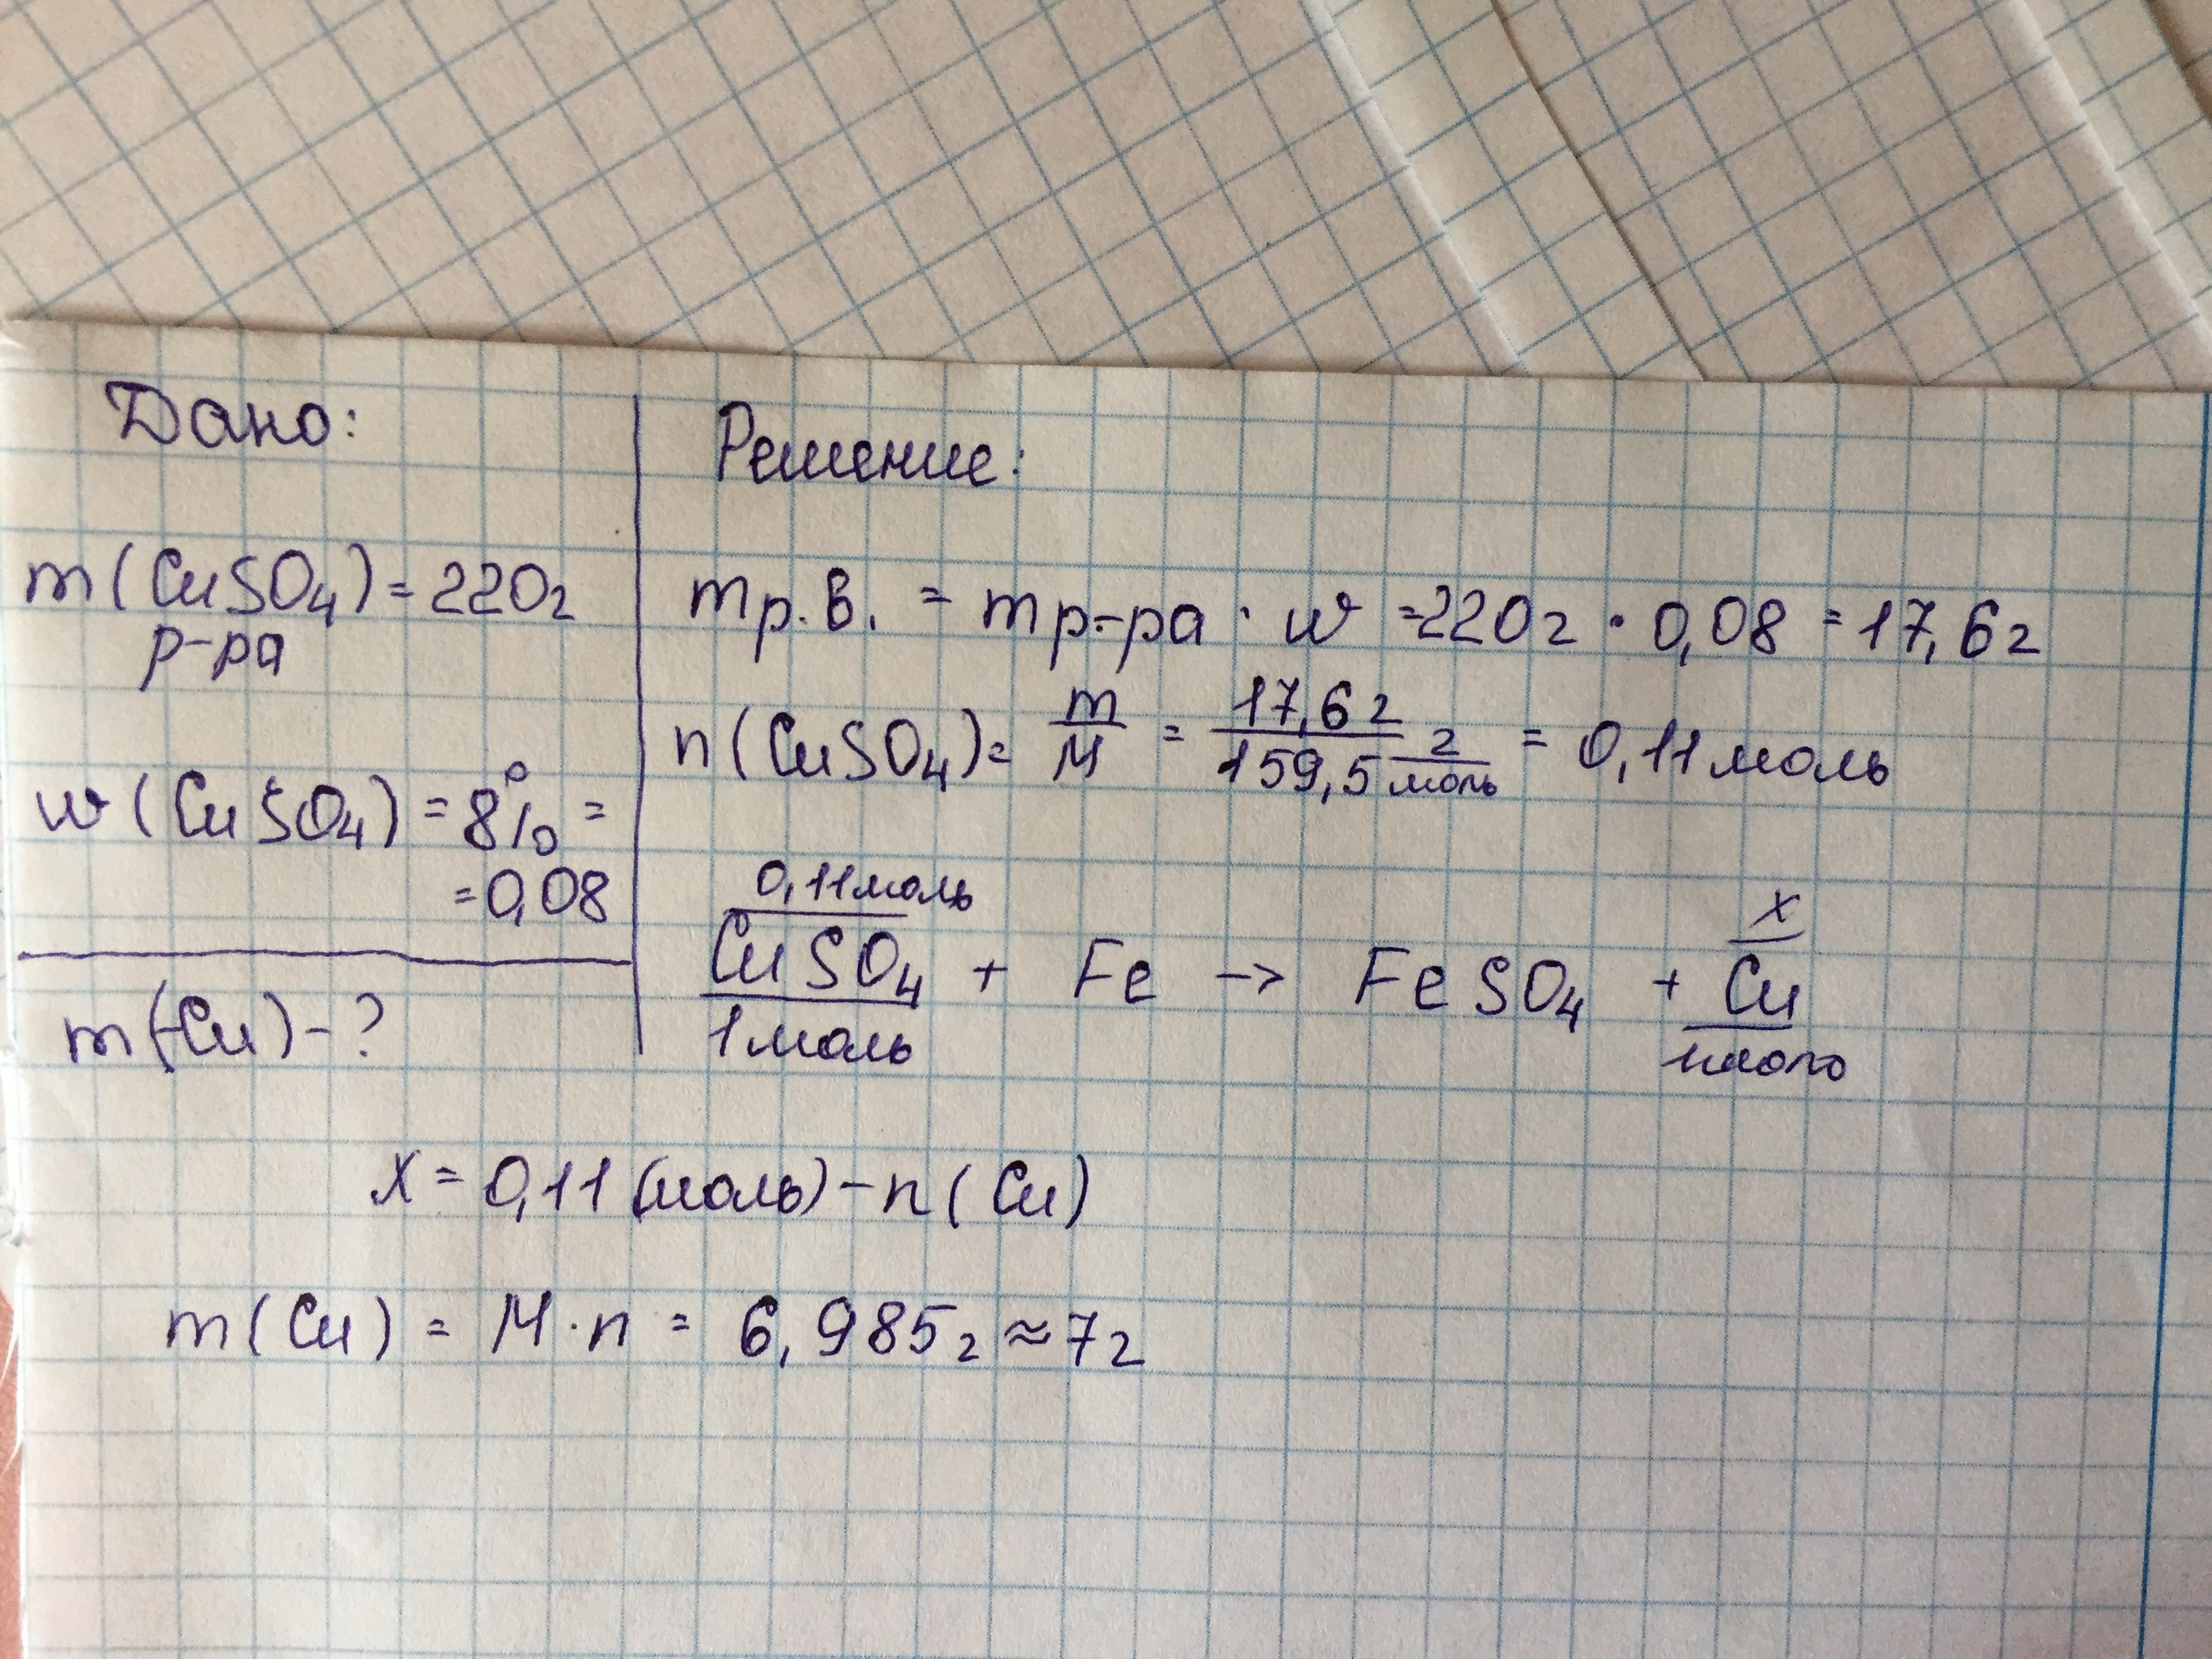 Дано:
m(CuSO4) = 220г
р-ра
w(CuSO4) = 8% =
= 0,08
m(Cu) - ?
Решение:
mр.в. = mр.-ра · w = 220г · 0,08 = 17,6г
n(CuSO4) = m/M = 17,6г / 159,5 г/моль = 0,11моль
0,11моль x
CuSO4 + Fe → FeSO4 + Cu
1моль
x = 0,11(моль) - n(Cu)
m(Cu) = M·n = 6,985г ≈ 7г